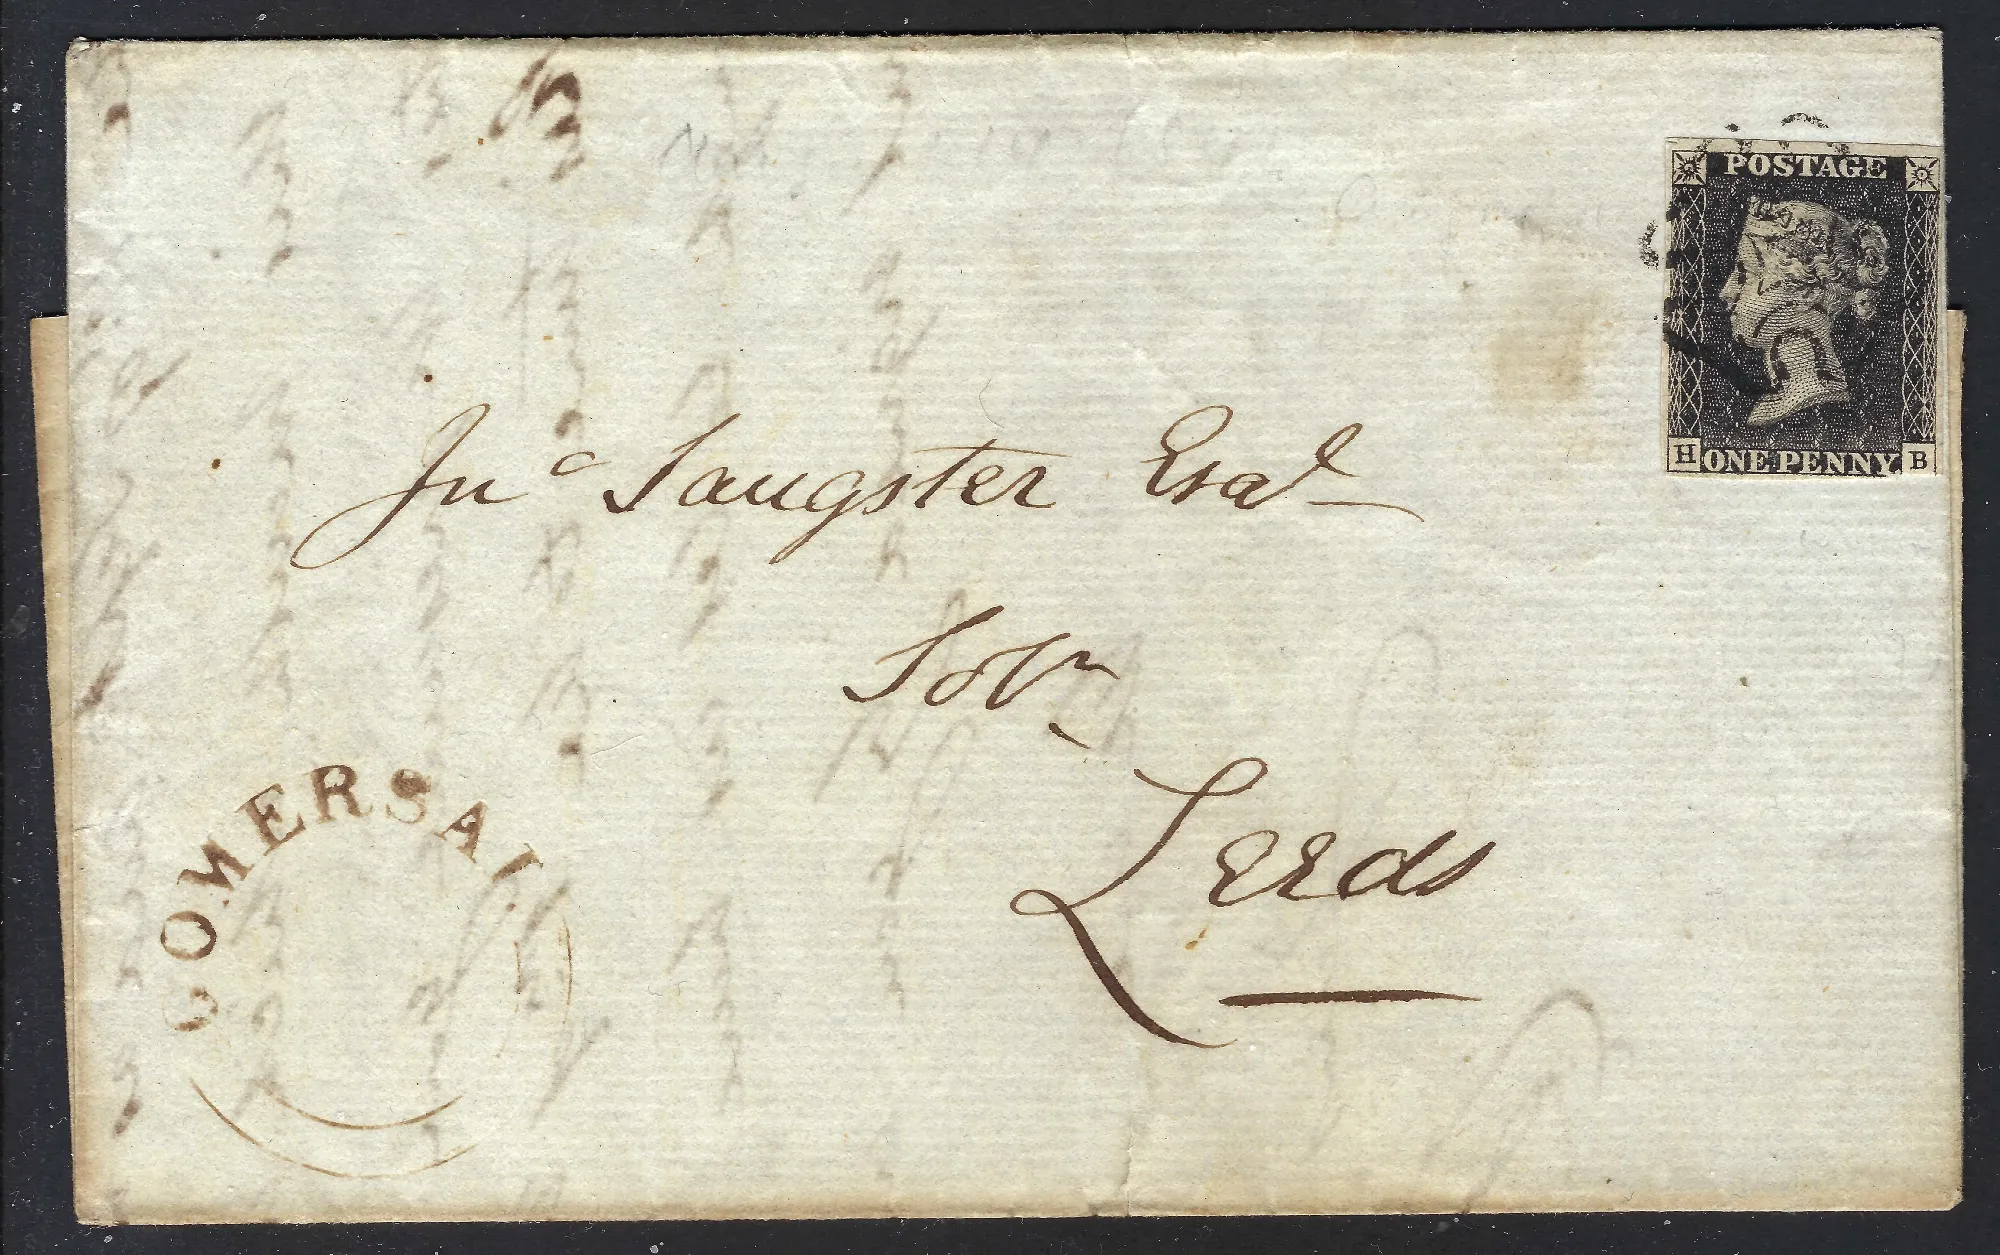 POSTAGE
H ONE PENNY B
Jno Sangster Esqr
Solr
Leeds
GOMERSAL